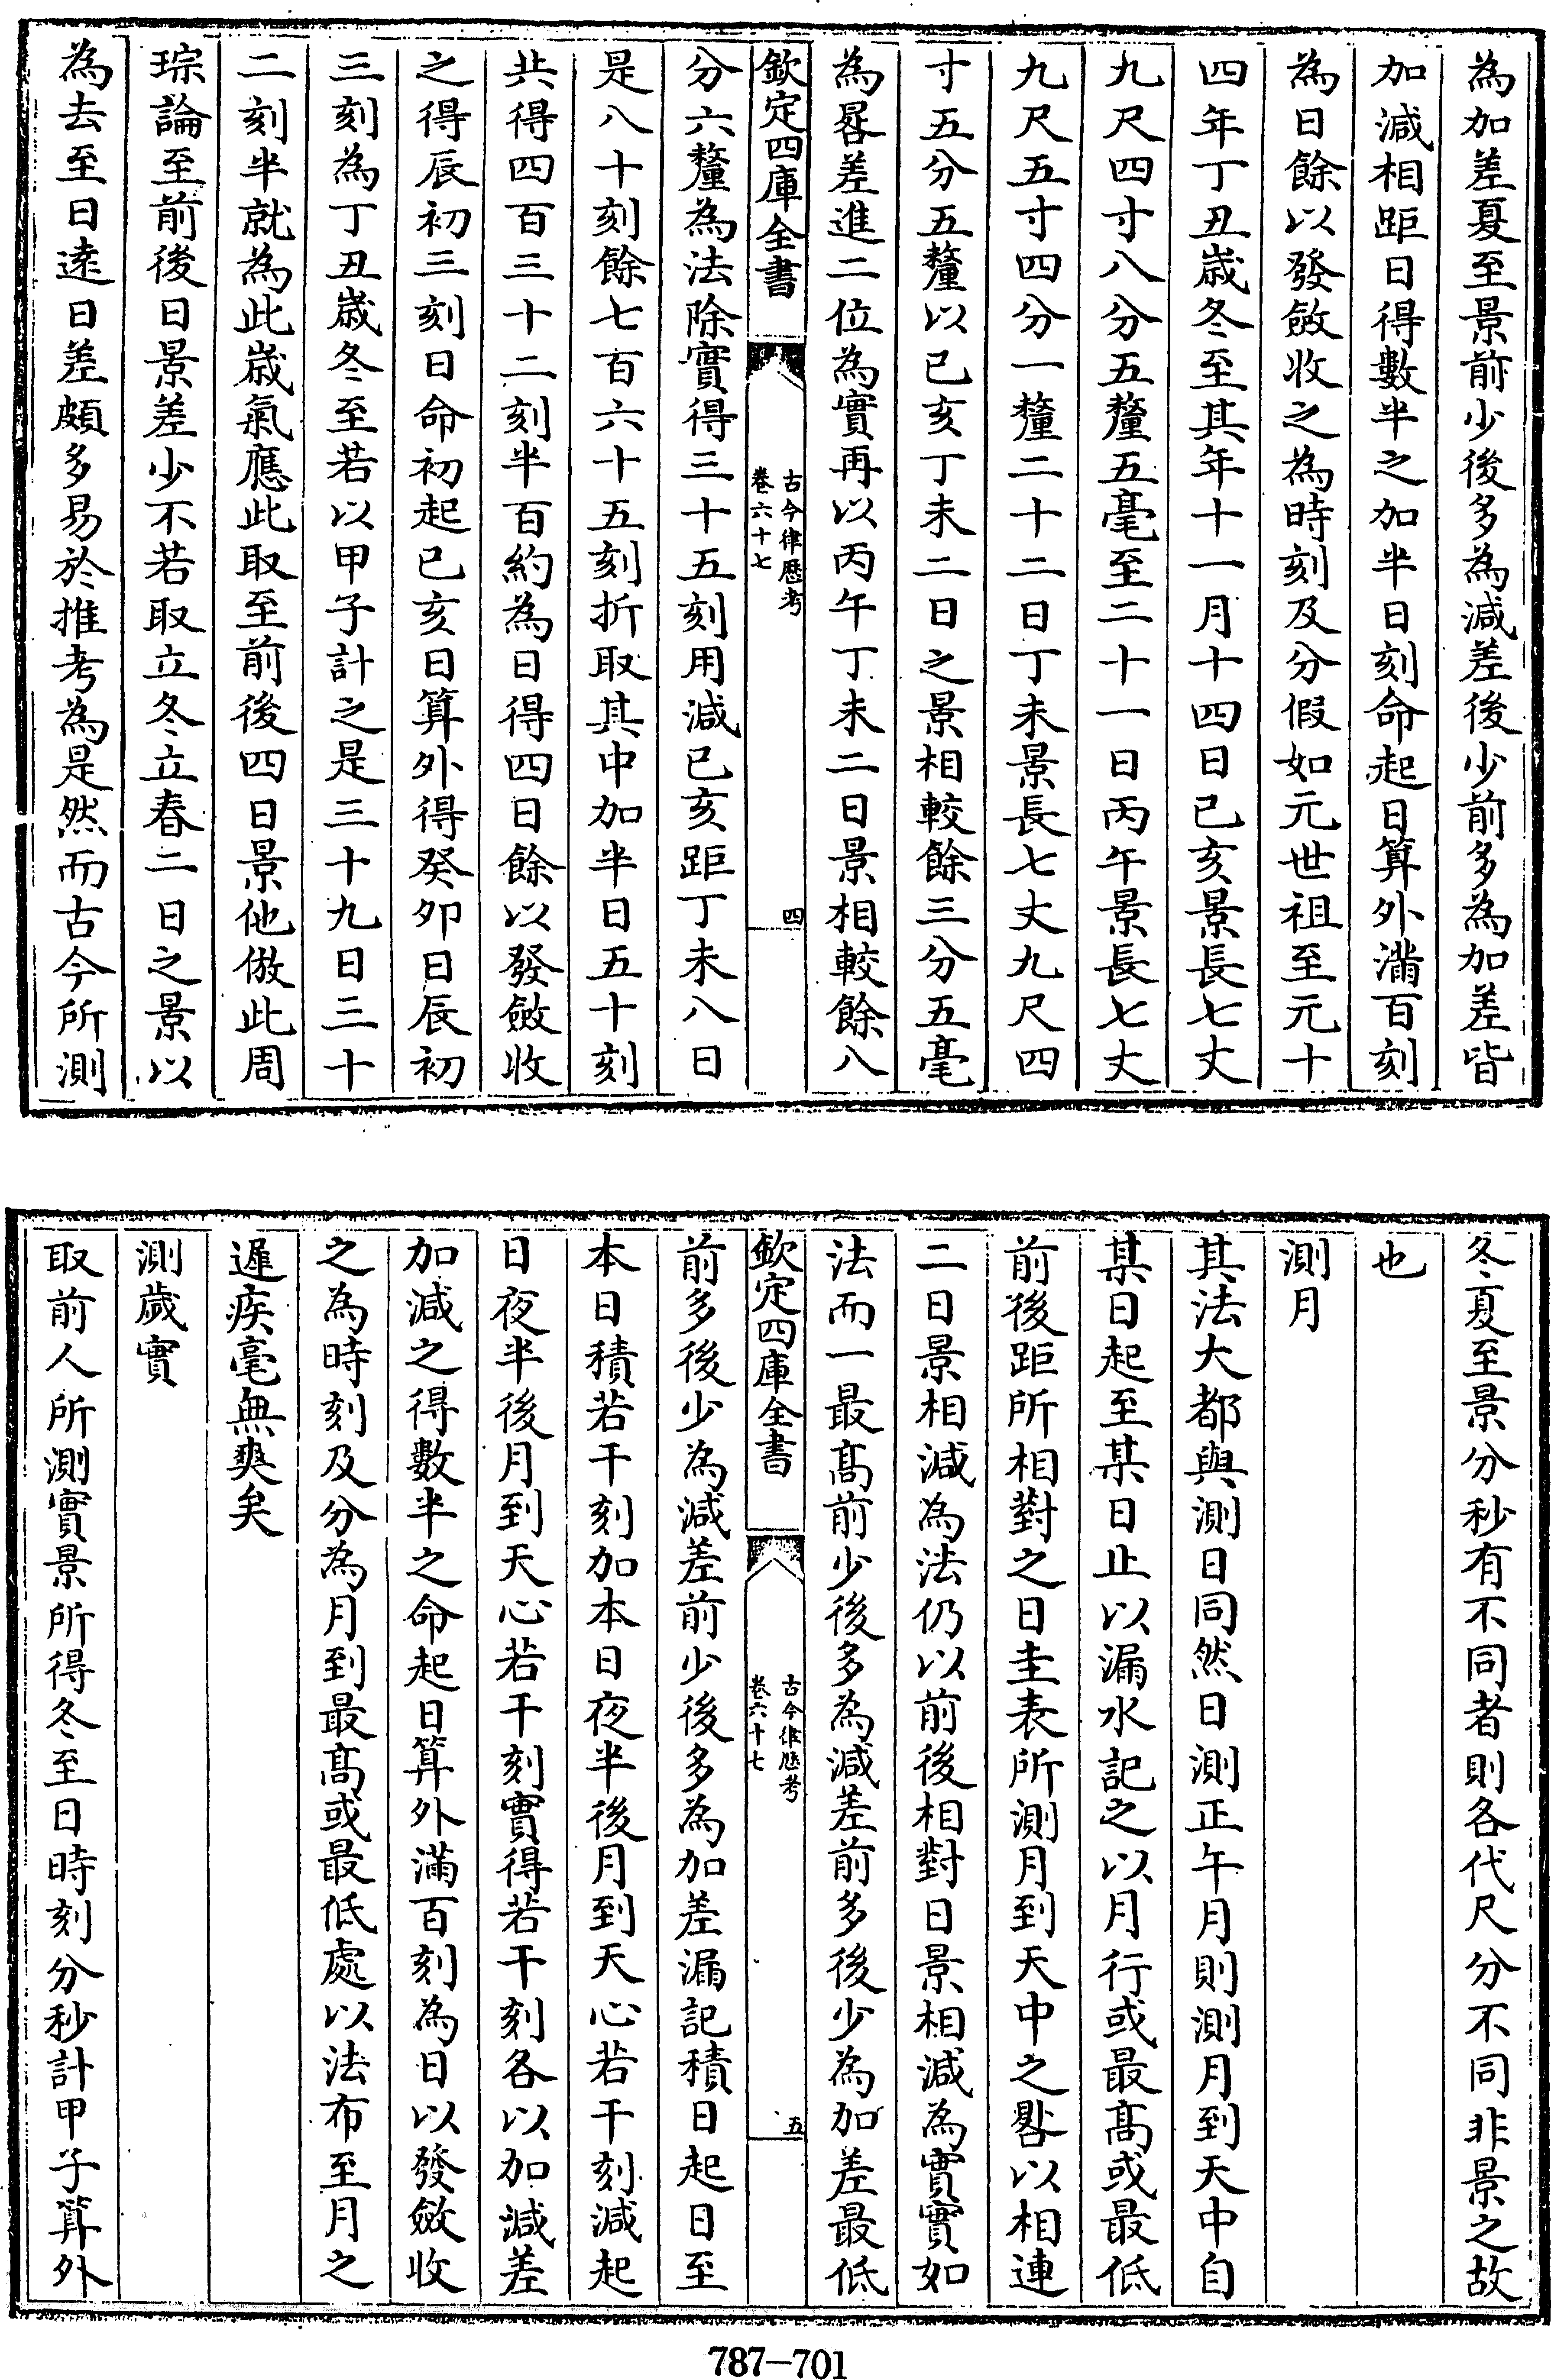 為加差夏至景前少後多為減差後少前多為加差皆
加減相距日得數半之加半日刻命起日算外滿百刻
為日餘以發斂收之為時刻及分假如元世祖至元十
四年丁丑歲冬至其年十一月十四日己亥景長七丈
九尺四寸八分五釐五毫至二十一日丙午景長七丈
九尺五寸四分一釐二十二日丁未景長七丈九尺四
寸五分五釐以已亥丁未二日之景相較餘三分五毫
為晷差進二位為實再以丙午丁未二日景相較餘八
欽定四庫全書
古今律歷考
卷六十七
四
分六釐為法除實得三十五刻用減已亥距丁未八日
是八十刻餘七百六十五刻折取其中加半日五十刻
共得四百三十二刻半百約為日得四日餘以發斂收
之得辰初三刻日命初起已亥日算外得癸卯日辰初
三刻為丁丑歲冬至若以甲子計之是三十九日三十
二刻半就為此歲氣應此取至前後四日景他倣此周
琮論至前後日景差少不若取立冬立春二日之景以
為去至日遠日差頗多易於推考為是然而古今所測
冬夏至景分秒有不同者則各代尺分不同非景之故
也
測月
其法大都與測日同然日測正午月則測月到天中自
某日起至某日止以漏水記之以月行或最高或最低
前後距所相對之日圭表所測月到天中之晷以相連
二日景相減為法仍以前後相對日景相減為實實如
法而一最高前少後多為減差前多後少為加差最低
欽定四庫全書
古今律歷考
卷六十七
五
前多後少為減差前少後多為加差漏記積日起日至
本日積若干刻加本日夜半後月到天心若干刻減起
日夜半後月到天心若干刻實得若干刻各以加減差
加減之得數半之命起日算外滿百刻為日以發斂收
之為時刻及分為月到最高或最低處以法布至月之
遲疾毫無爽矣
測歲實
取前人所測實景所得冬至日時刻分秒計甲子算外
787-701